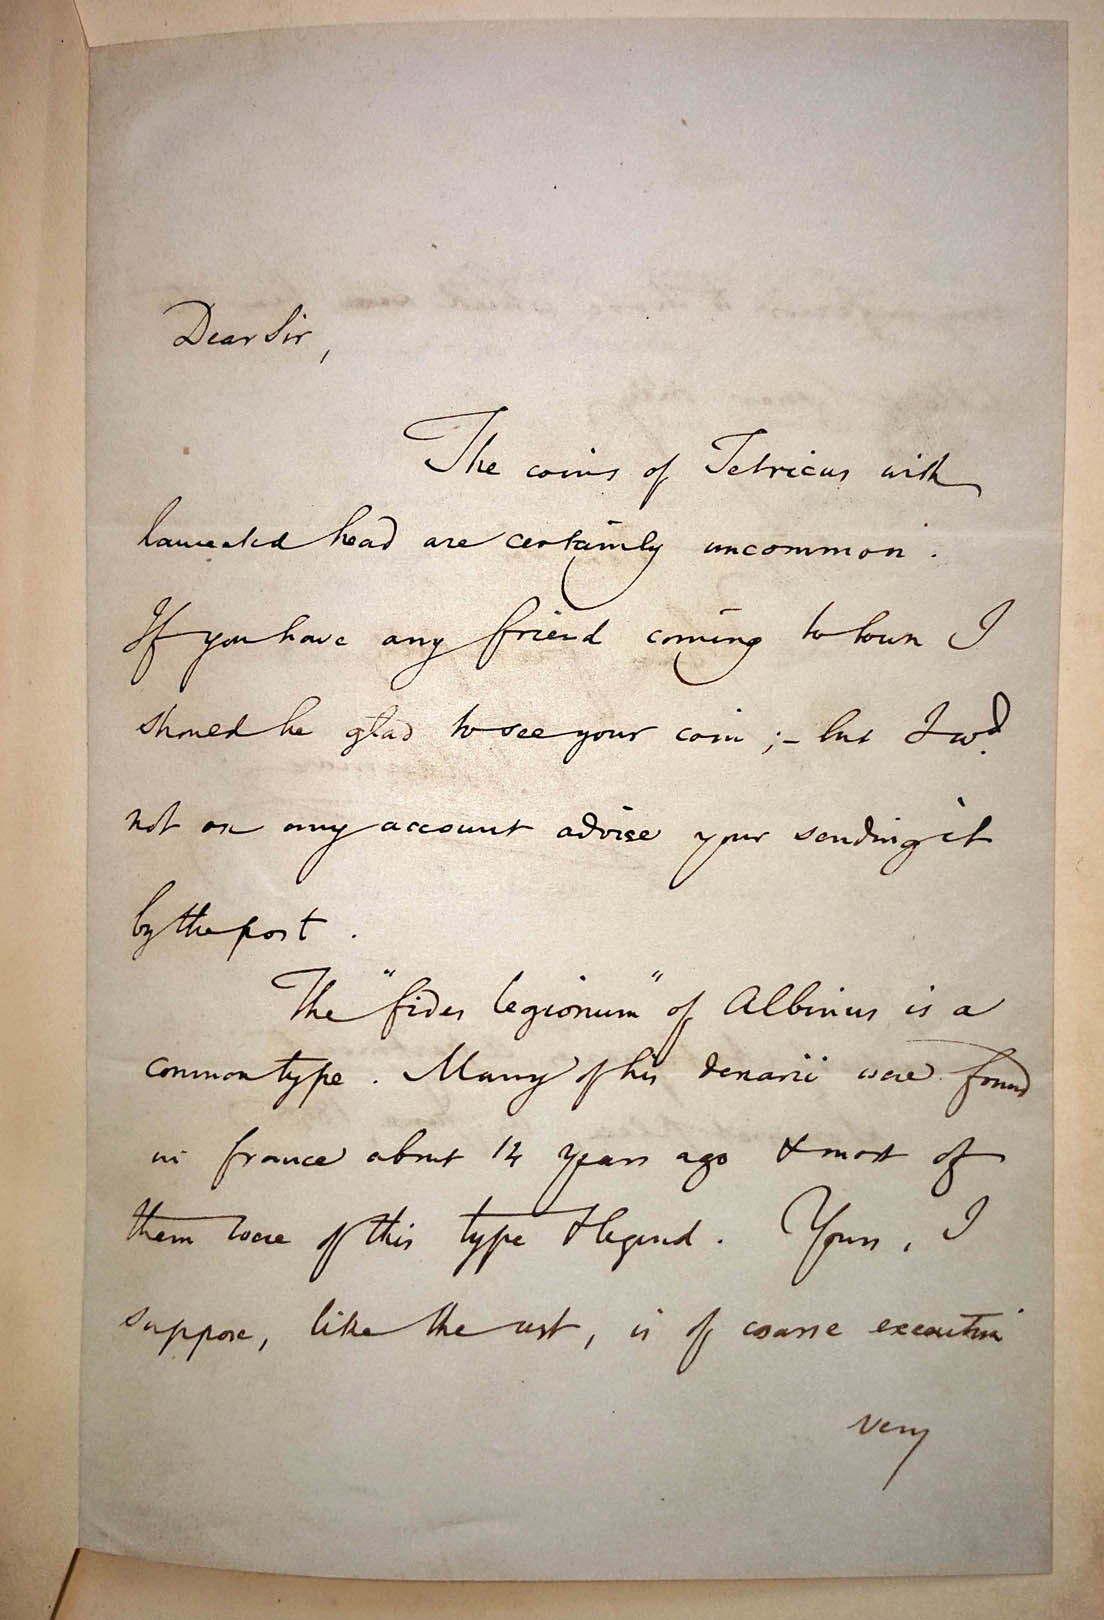 Dear Sir,
The coins of Tetricus with
laureated head are certainly uncommon.
If you have any friend coming to town I
should be glad to see your coin ;– but I wd.
not on any account advise your sending it
by the post.
The "fides legionum" of Albinus is a
common type. Many of his denarii were found
in france about 14 years ago & most of
them were of this type & legend. Yours, I
suppose, like the rest, is of coarse execution
very